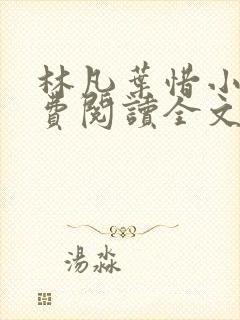 林凡葉惜小
費閱讀全文
湯淼